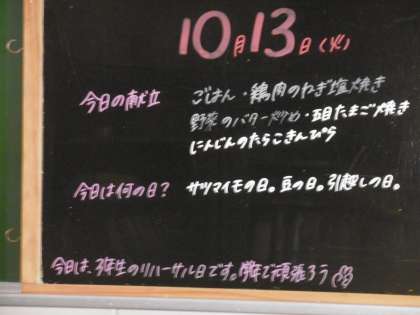 10月13日(火)
今日の献立
ごはん・鶏肉のねぎ塩焼き
野菜のバター炒め・五目たまご焼き
にんじんのたらこきんぴら
今日は何の日? サツマイモの日。豆の日。引越しの日。
今日は、3年生のリハーサル日です。学年で頑張ろう